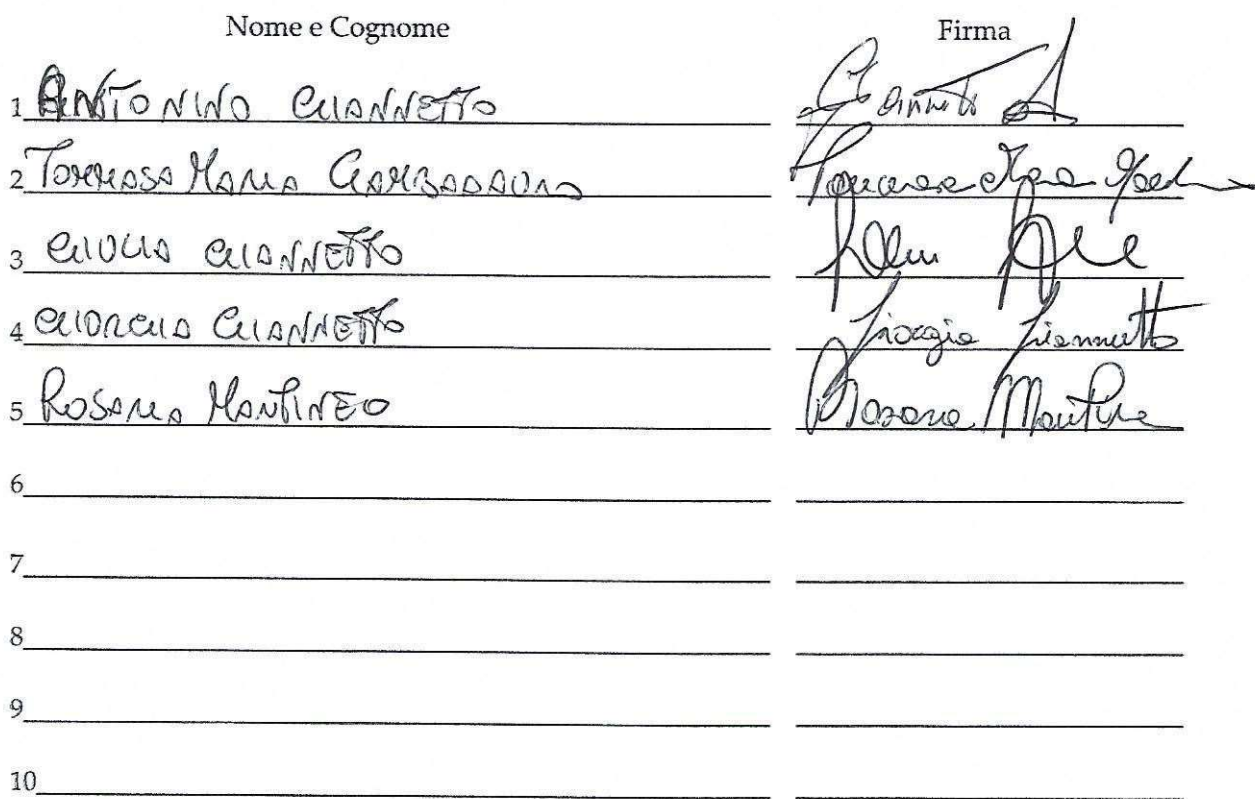 Nome e Cognome Firma
1 ANTONINO GIANNETTO Giannetto A
2 TOMMASA MARIA Tommasa Maria
3 GIULIA GIANNETTO
4 GIORGIA GIANNETTO Giorgia Giannetto
5 ROSARIA MANTINEO Rosaria Mantineo
6
7
8
9
10